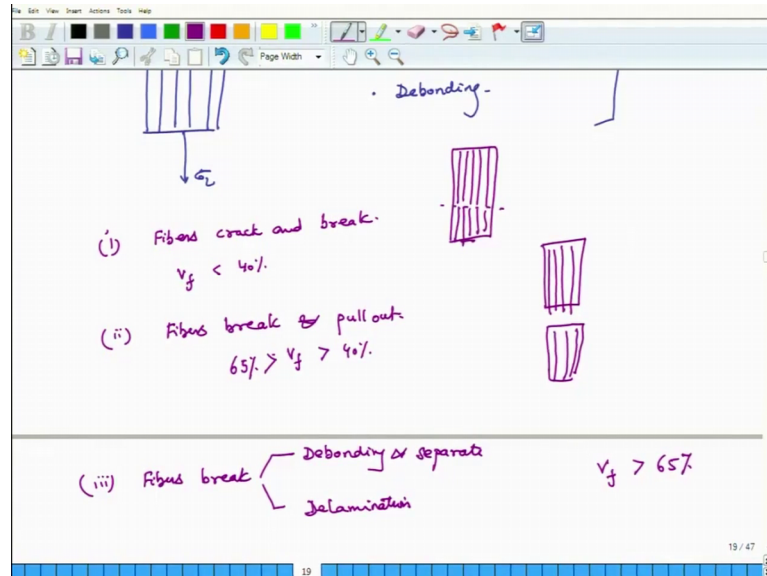 File Edit View Insert Actions Tools Help
B I
Page Width
. Debonding -
σL
(i) Fibers crack and break.
Vf < 40%.
(ii) Fibers break & pull out.
65% > Vf > 40%.
(iii) Fibers break
Debonding & separate
Delamination
Vf > 65%
19 / 47
19